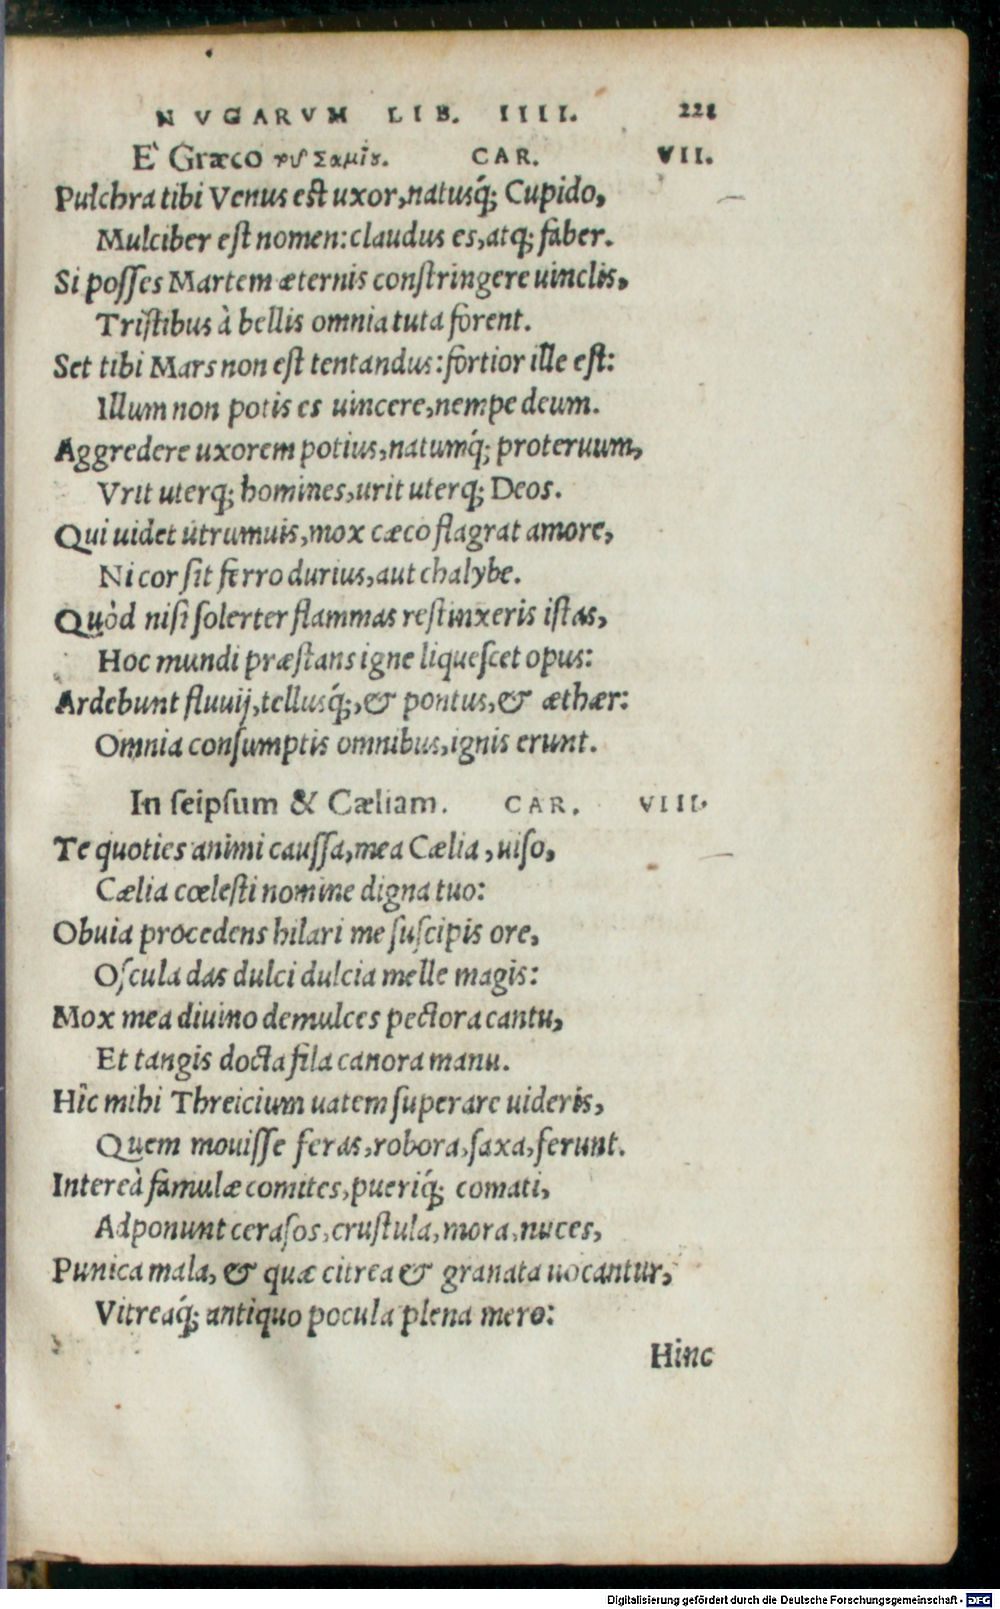 NVGARVM LIB. IIII. 221
E` Græco τοῦ Σαμίου. CAR. VII.
Pulchra tibi Venus est uxor, natusq́; Cupido,
Mulciber est nomen: claudus es, atq; faber.
Si posses Martem æternis constringere uinclis,
Tristibus à bellis omnia tuta forent.
Set tibi Mars non est tentandus: fortior ille est:
Illum non potis es uincere, nempe deum.
Aggredere uxorem potius, natumq́; proteruum,
Vrit uterq; homines, urit uterq; Deos.
Qui uidet utrumuis, mox cæco flagrat amore,
Ni cor sit ferro durius, aut chalybe.
Quòd nisi solerter flammas restinxeris istas,
Hoc mundi præstans igne liquescet opus:
Ardebunt fluuij, tellusq́;, & pontus, & æthær:
Omnia consumptis omnibus, ignis erunt.
In seipsum & Cæliam. CAR. VIII.
Te quoties animi caussa, mea Cælia, uiso,
Cælia cœlesti nomine digna tuo:
Obuia procedens hilari me suscipis ore,
Oscula das dulci dulcia melle magis:
Mox mea diuino demulces pectora cantu,
Et tangis docta fila canora manu.
Hîc mihi Threicium uatem superare uideris,
Quem mouisse feras, robora, saxa, ferunt.
Intereà famulæ comites, pueriq́; comati,
Adponunt cerasos, crustula, mora, nuces,
Punica mala, & quæ citrea & granata uocantur,
Vitreaq́; antiquo pocula plena mero:
Hinc
Digitalisierung gefördert durch die Deutsche Forschungsgemeinschaft - DFG